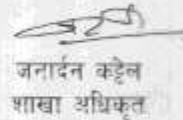 जनार्दन कट्टेल
शाखा अधिकृत